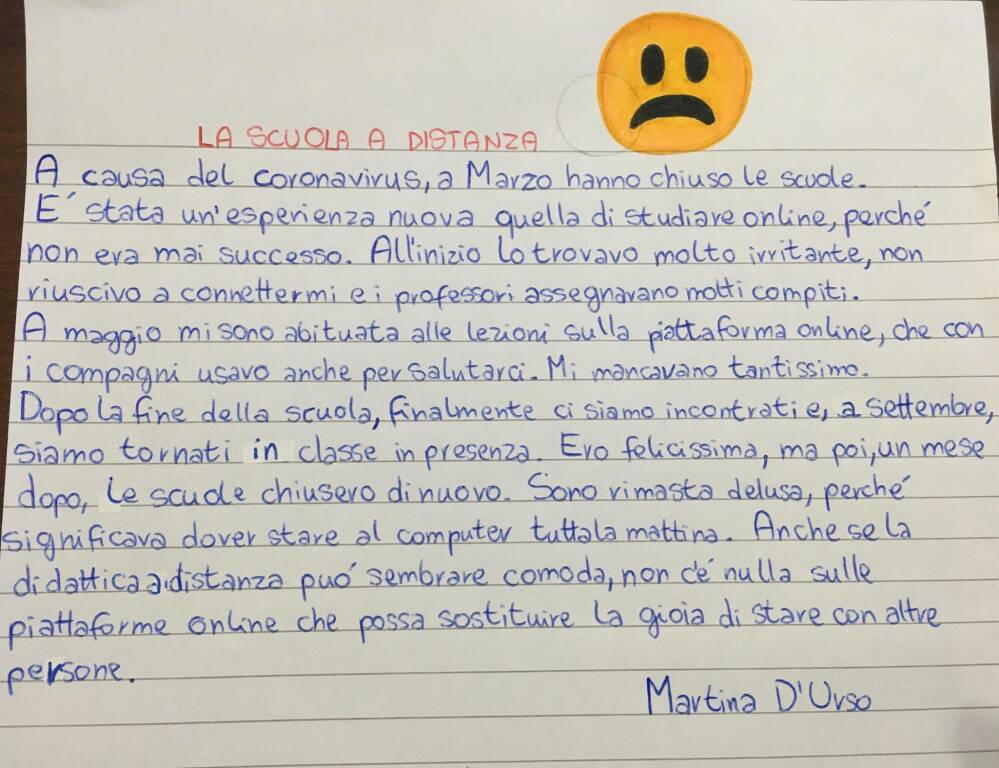 LA SCUOLA A DISTANZA
A causa del coronavirus, a Marzo hanno chiuso le scuole.
E' stata un'esperienza nuova quella di studiare online, perché
non era mai successo. All'inizio lo trovavo molto irritante, non
riuscivo a connettermi e i professori assegnavano molti compiti.
A maggio mi sono abituata alle lezioni sulla piattaforma online, che con
i compagni usavo anche per salutarci. Mi mancavano tantissimo.
Dopo la fine della scuola, finalmente ci siamo incontrati e, a settembre,
siamo tornati in classe in presenza. Ero felicissima, ma poi, un mese
dopo, le scuole chiusero di nuovo. Sono rimasta delusa, perché
significava dover stare al computer tutta la mattina. Anche se la
didattica a distanza può sembrare comoda, non c'è nulla sulle
piattaforme online che possa sostituire la gioia di stare con altre
persone.
Martina D'Urso